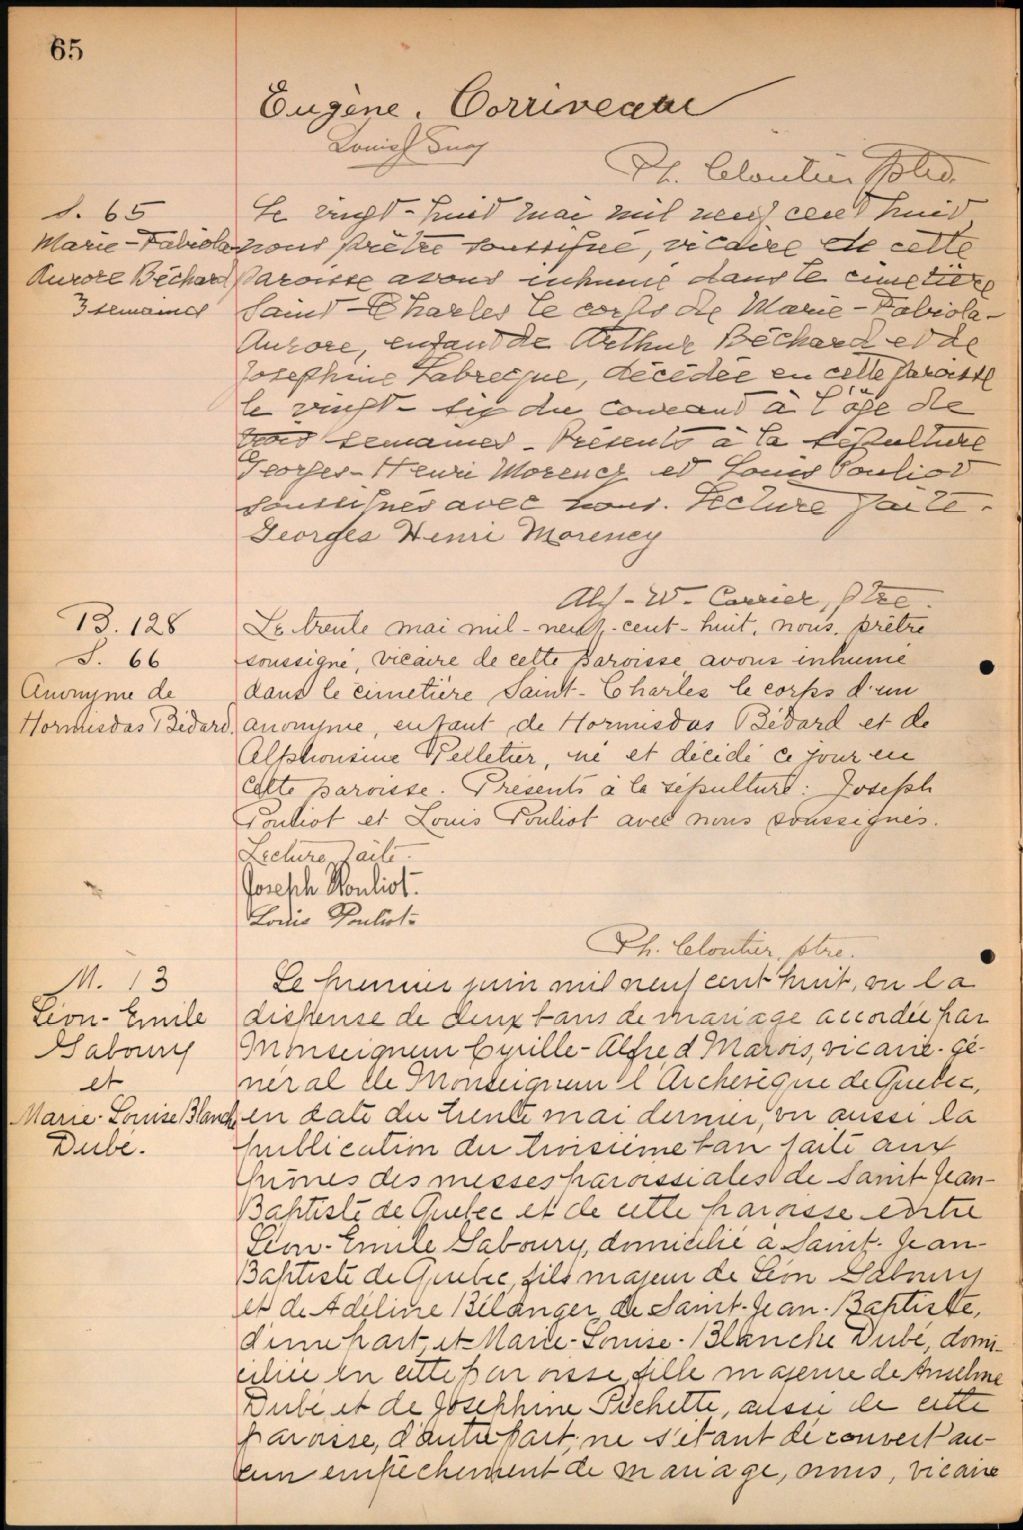 65
Eugène. Corriveau
Louis J
Ph. Cloutier ptre.
S. 65
Marie-Fabiola-
Aurore Béchard
3 semaines
Le vingt-huit mai mil neuf cent huit
nous prêtre soussigné, vicaire de cette
paroisse avons inhumé dans le cimetière
Saint-Charles le corps de Marie-Fabiola-
Aurore, enfant de Arthur Béchard et de
Josephine Labrecque, décédée en cette paroisse
le vingt-six du courant à l'âge de
trois semaines - Présents à la sépulture
Georges-Henri Morency et Louis Pouliot
soussignés avec nous. Lecture faite.
Georges Henri Morency
Alf-W. Carrier, ptre.
B. 128
S. 66
Anonyme de
Hormisdas Bédard.
Le trente mai mil-neuf-cent-huit, nous, prêtre
soussigné, vicaire de cette paroisse avons inhumé
dans le cimetière Saint-Charles le corps d'un
anonyme, enfant de Hormisdas Bédard et de
Alphonsine Pelletier, né et décidé ce jour en
cette paroisse. Présents à la sépulture: Joseph
Pouliot et Louis Pouliot avec nous soussignés.
Lecture faite.
Joseph Pouliot.
Louis Pouliot-
Ph. Cloutier, ptre.
M. 13
Léon-Emile
Gaboury
et
Marie-Louise Blanche
Dubé.
Le premier juin mil neuf cent huit, vu la
dispense de deux bans de mariage accordée par
Monseigneur Cyrille-Alfred Marois, vicaire-gé-
néral de Monseigneur l'Archevêque de Quebec,
en date du trente mai dernier, vu aussi la
publication du troisième ban faite aux
prônes des messes paroissiales de Saint-Jean-
Baptiste de Quebec et de cette paroisse entre
Léon-Emile Gaboury, domicilié à Saint-Jean-
Baptiste de Quebec, fils majeur de Léon Gaboury
et de Adéline Bélanger de Saint-Jean-Baptiste,
d'une part, et Marie-Louise-Blanche Dubé, domi-
ciliée en cette paroisse, fille majeure de Anselme
Dubé et de Josephine Pichette, aussi de cette
paroisse, d'autre part; ne s'étant découvert au-
cun empêchement de mariage, nous, vicaire